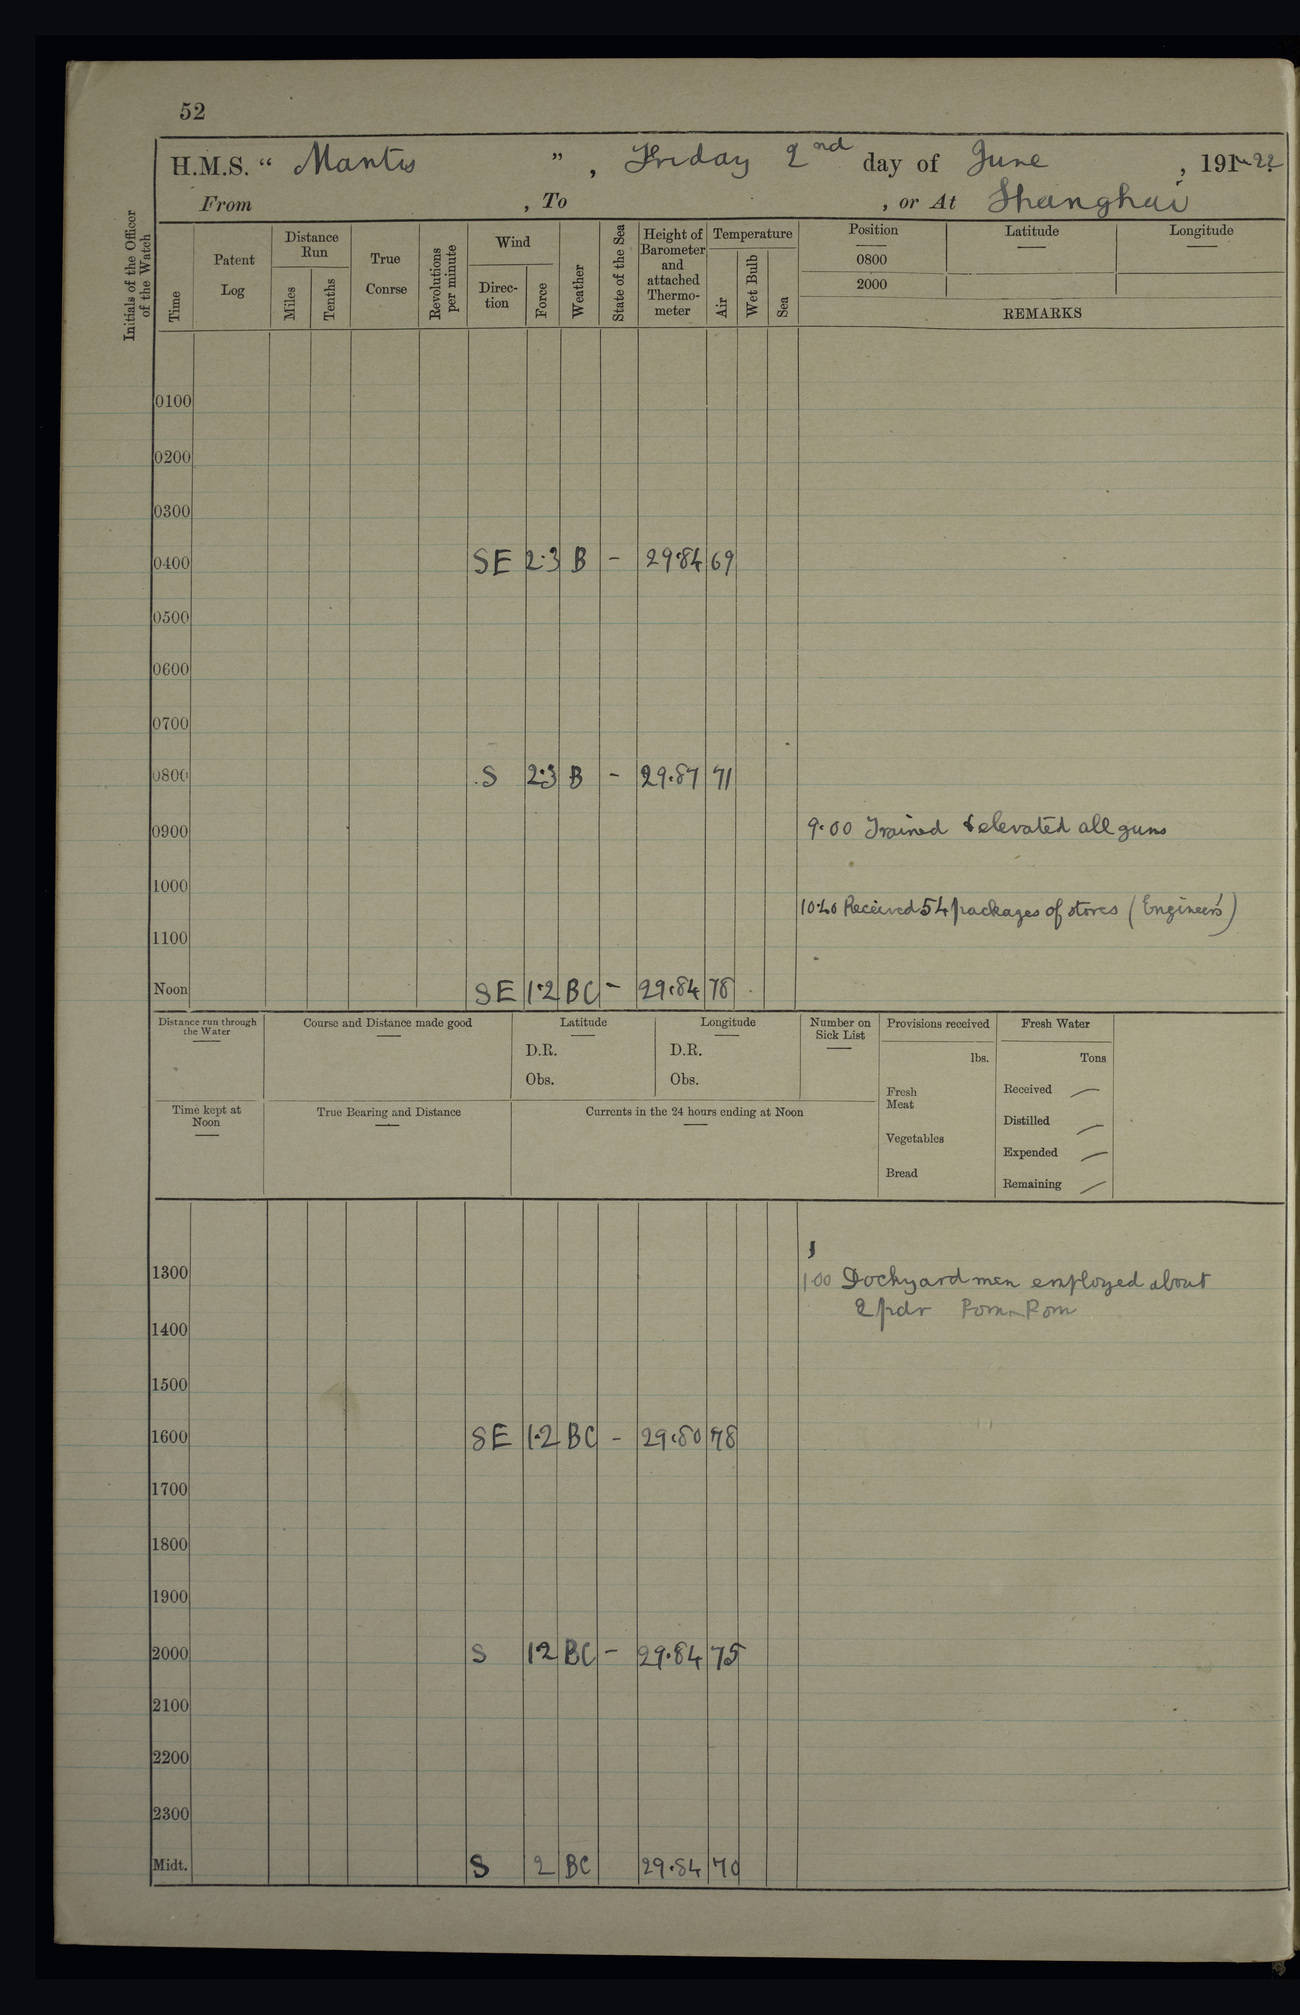 52
H.M.S. “ Mantis ” , Friday 2nd day of June , 1922
From , To , or At Shanghai
Initials of the Officer of the Watch
Time
Patent Log
Distance Run
Miles
Tenths
True Conrse
Revolutions per minute
Wind
Direc- tion
Force
Weather
State of the Sea
Height of Barometer and attached Thermo- meter
Temperature
Air
Wet Bulb
Sea
Position Latitude Longitude
0800
2000
REMARKS
0100
0200
0300
0400 SE 2·3 B - 29·84 69
0500
0600
0700
0800 S 2·3 B - 29·87 71
0900 9·00 Trained & elevated all guns
1000
10·40 Received 54 packages of stores (Engineer's)
1100
Noon SE 1·2 BC - 29·84 78
Distance run through the Water
Course and Distance made good
Latitude
D.R.
Obs.
Longitude
D.R.
Obs.
Number on Sick List
Provisions received
lbs.
Fresh Meat
Vegetables
Bread
Fresh Water
Tons
Received —
Distilled —
Expended —
Remaining —
Time kept at Noon
True Bearing and Distance
Currents in the 24 hours ending at Noon
1300 1·00 Dockyard men employed about
2 pdr Pom-Pom
1400
1500
1600 SE 1·2 BC - 29·80 78
1700
1800
1900
2000 S 1·2 BC - 29·84 75
2100
2200
2300
Midt. S 2 BC 29·84 70